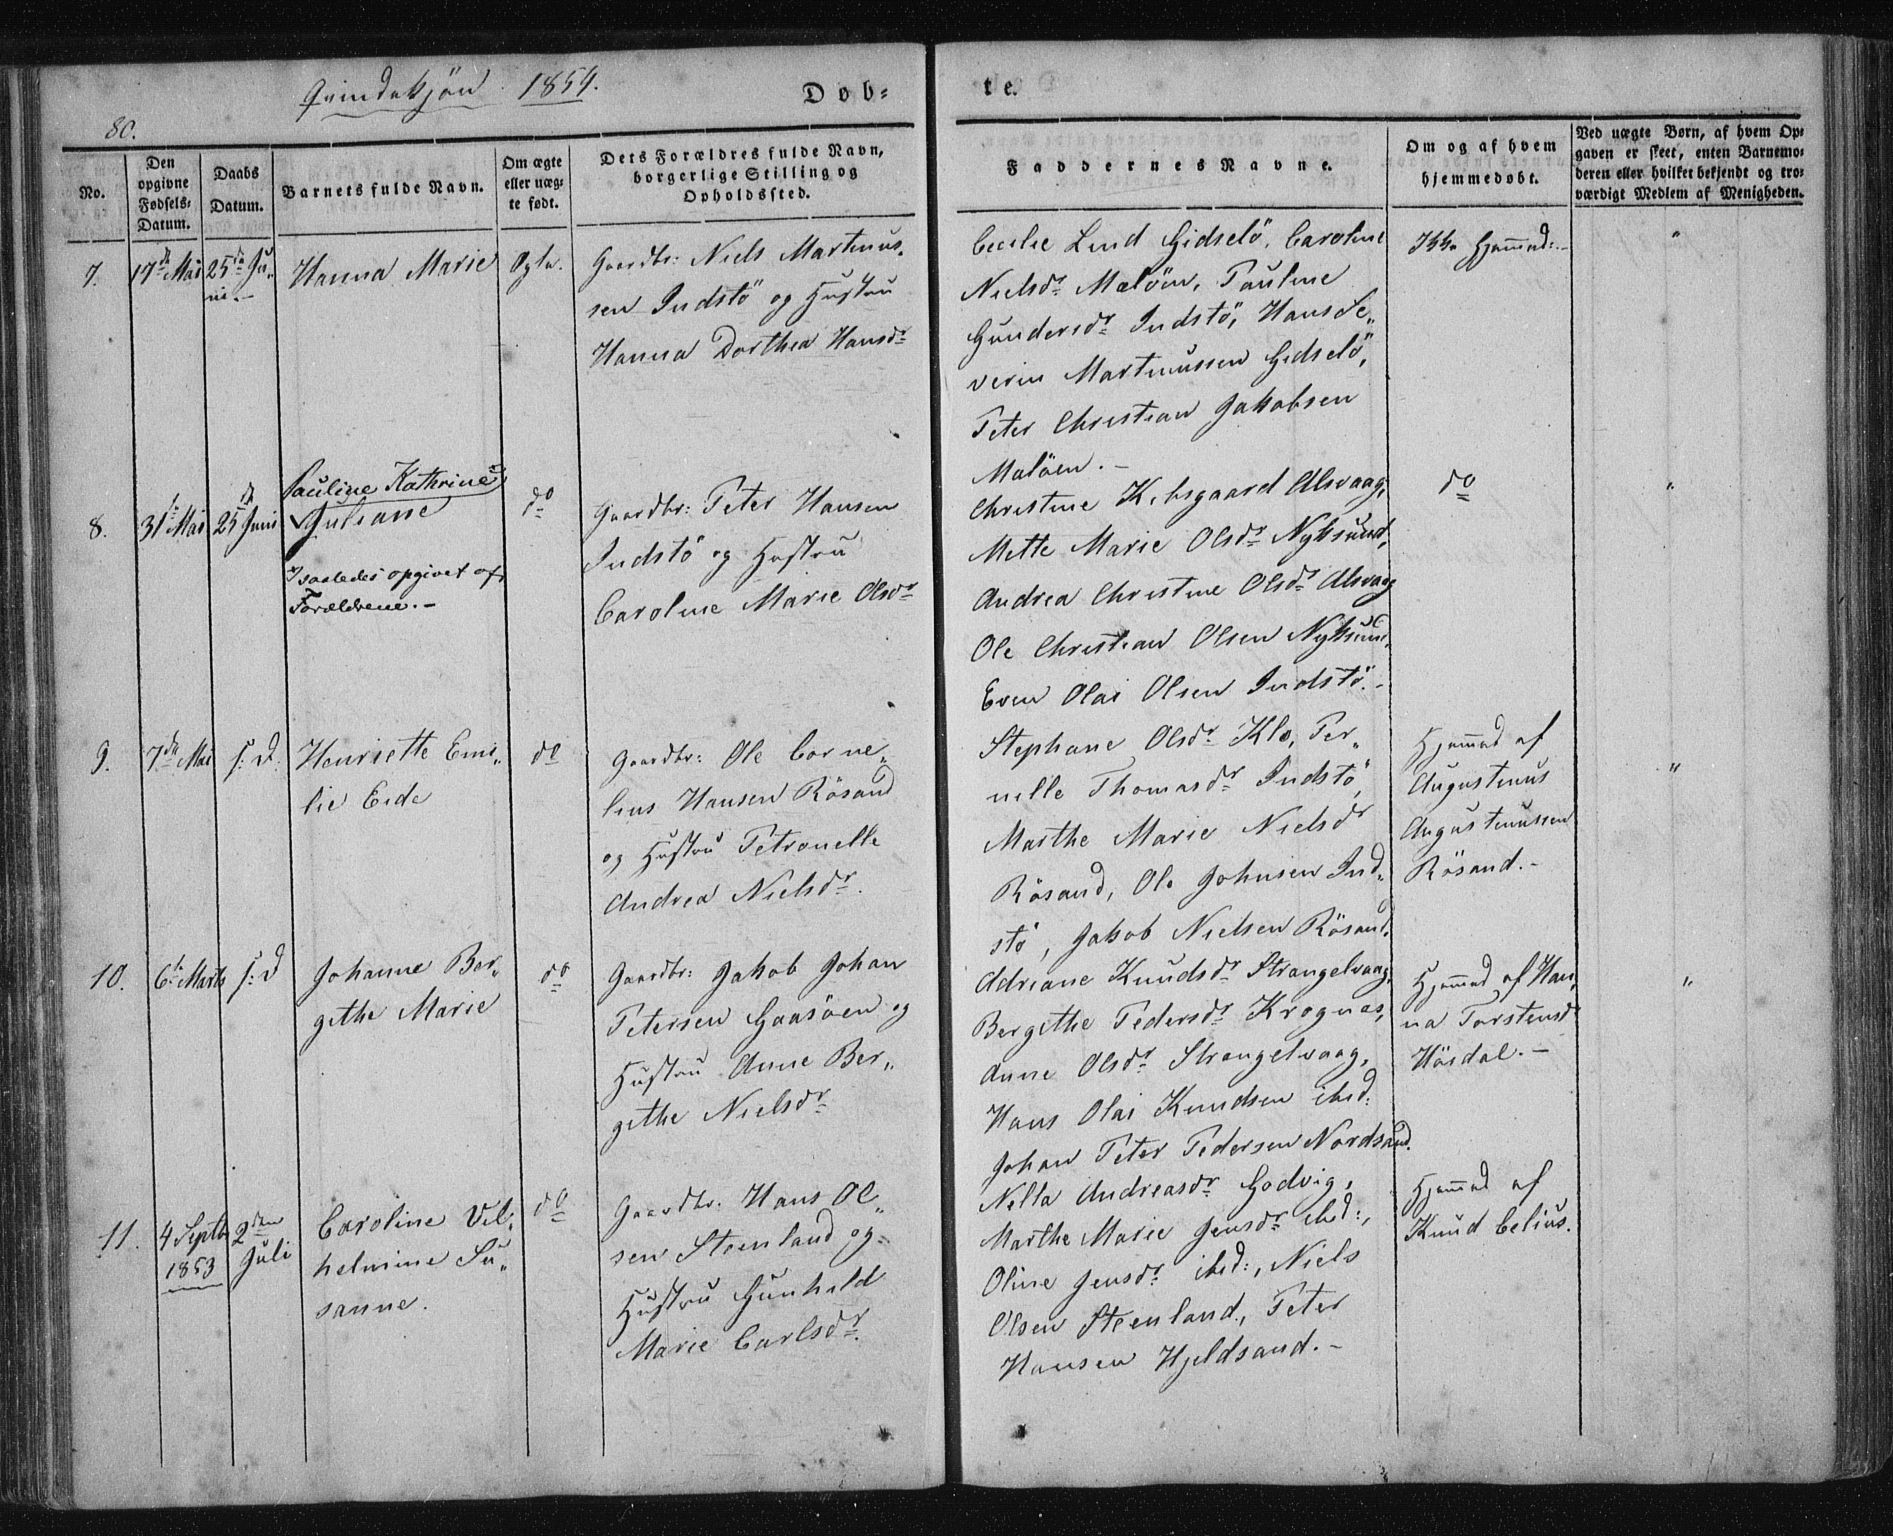 Qvindekjön 1854.
Døb-
te.
80.
No.
Den opgivne Fødsels-Datum.
Daabs Datum.
Barnets fulde Navn.
Om ægte eller uæg-te født.
Dets Forældres fulde Navn, borgerlige Stilling og Opholdssted.
Faddernes Navne.
Om og af hvem hjemmedøbt.
Ved uægte Børn, af hvem Op-gaven er skeet, enten Barnemo-deren eller hvilket bekjendt og tro-værdigt Medlem af Menigheden.
7.
17de Mai
25de Ju„
ni.-
Hanna Marie
Ægte.
Gaardbr: Niels Martinus„
sen Indstö og Hustru
Hanna Dorthea Hansdr
Cecilie Lind Gidselö, Caroline
Nielsdr Malöen, Pauline
Gundersdr Indstö, Hans Se„
verin Martinussen Gidselö,
Peter Christian Jakobsen
Malöen.-
Ikke Hjemmed:-
"
8.
31te Mai
25d Juni
Pauline Kathrine
Juliane
Isaaledes opgivet af
Forældrene.-
do
Gaardbr: Peter Hansen
Indstö og Hustru
Caroline Marie Olsdr
Christine Kibsgaard Alsvaag,
Mette Marie Olsdr Nyksund,
Andrea Christine Olsdr Alsvaag
Ole Christian Olsen Nyksund,
Even Olai Olsen Indstö.-
do
"
9.
7de Mai
s: D.
Henriette Emi„
lie Eide
do
Gaardbr: Ole Corne„
lius Hansen Rösand
og Hustru Petronelle
Andrea Nielsdr.
Stephane Olsdr Klo, Per„
nille Thomasdr Indstö,
Marthe Marie Nielsdr
Rösand, Ole Johnsen Ind„
stö, Jakob Nielsen Rösand.
Hjemmed af
Augustinus
Augustinussen
Rösand.-
"
10.
6te Marts
s: D
Johanne Ber„
githe Marie
do
Gaardbr: Jakob Johan
Petersen Gaasöen og
Hustru Anne Ber„
githe Nielsdr
Adriane Knudsdr Strengelvaag,
Bergithe Pedersdr Krognes,
Anne Olsdr Strengelvaag,
Hans Olai Knudsen ibid:
Johan Peter Pedersen Nordsand.
Hjemmed af Han„
na Torstensdr
Höidal.-
"
11.
4 Septbr
1853
2den
Juli
Caroline Vil„
helmine Su„
sanne.
do
Gaardbr. Hans Ol„
sen Steenland og
Hustru Gunhild
Marie Carlsdr.
Nella Andreasdr Godvig,
Marthe Marie Jensdr ibid:,
Oline Jensdr ibid:, Niels
Olsen Steenland, Peter
Hansen Hjeldsand.-
Hjemmed af
Knud Celius.